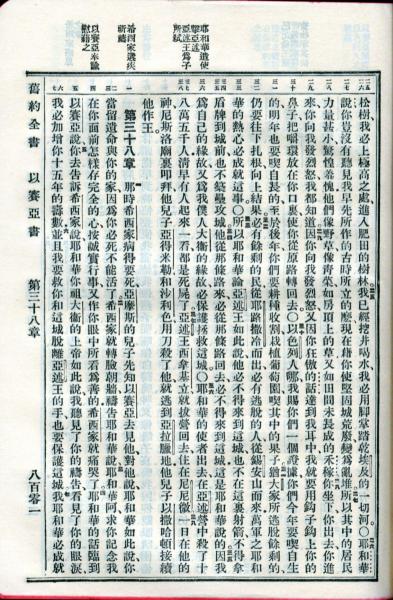 耶和華遣使
擊亞述
亞述王爲子
所弑
希西家遘疾
祈禱
以賽亞奉諭
慰藉之
松樹我必上極高之處進入肥田的樹林我已經挖井喝水我必用腳掌踏乾埃及的一切河○耶和華
說你豈沒有聽見我早先所作的古時所立的麼現在藉你使堅固城荒廢變爲亂堆所以其中的居民
力量甚小驚惶羞愧他們像野草像青菜如房頂上的草又如田間未長成的禾稼你坐下你出去你進
來你向我發烈怒我都知道因你向我發烈怒又因你狂傲的話達到我耳中我就要用鈎子鈎上你的
鼻子把嚼環放在你口裏使你從原路轉回去○以色列人哪我賜你們一個證據你們今年要喫自生
的明年也要喫自長的至於後年你們要耕種收割栽植葡萄園喫其中的果子猶大家所逃脫餘剩的
仍要往下扎根向上結果必有餘剩的民從耶路撒冷而出必有逃脫的人從錫安山而來萬軍之耶和
華的熱心必成就這事○所以耶和華論亞述王如此說他必不得來到這城也不在這裏射箭不得拿
盾牌到城前也不築壘攻城他從那條路來必從那條路回去必不得來到這城這是耶和華說的因我
爲自己的緣故又爲我僕人大衛的緣故必保護拯救這城○耶和華的使者出去在亞述營中殺了十
八萬五千人清早有人起來一看都是死屍了亞述王西拿基立就拔營回去住在尼尼微一日在他的
神尼斯洛廟裏叩拜他兒子亞得米勒和沙利色用刀殺了他就逃到亞拉臘地他兒子以撒哈頓接續
他作王
第三十八章 那時希西家病得要死亞摩斯的兒子先知以賽亞去見他對他說耶和華如此說你
當留遺命與你的家因爲你必死不能活了希西家就轉臉朝牆禱告耶和華說耶和華阿求你記念我
在你面前怎樣存完全的心按誠實行事又作你眼中所看爲善的希西家就痛哭了耶和華的話臨到
以賽亞說你去告訴希西家說耶和華你祖大衛的上帝如此說我聽見了你的禱告看見了你的眼淚
我必加增你十五年的壽數並且我要救你和這城脫離亞述王的手也要保護這城我耶和華必成就
舊約全書 以賽亞書 第三十八章 八百零一